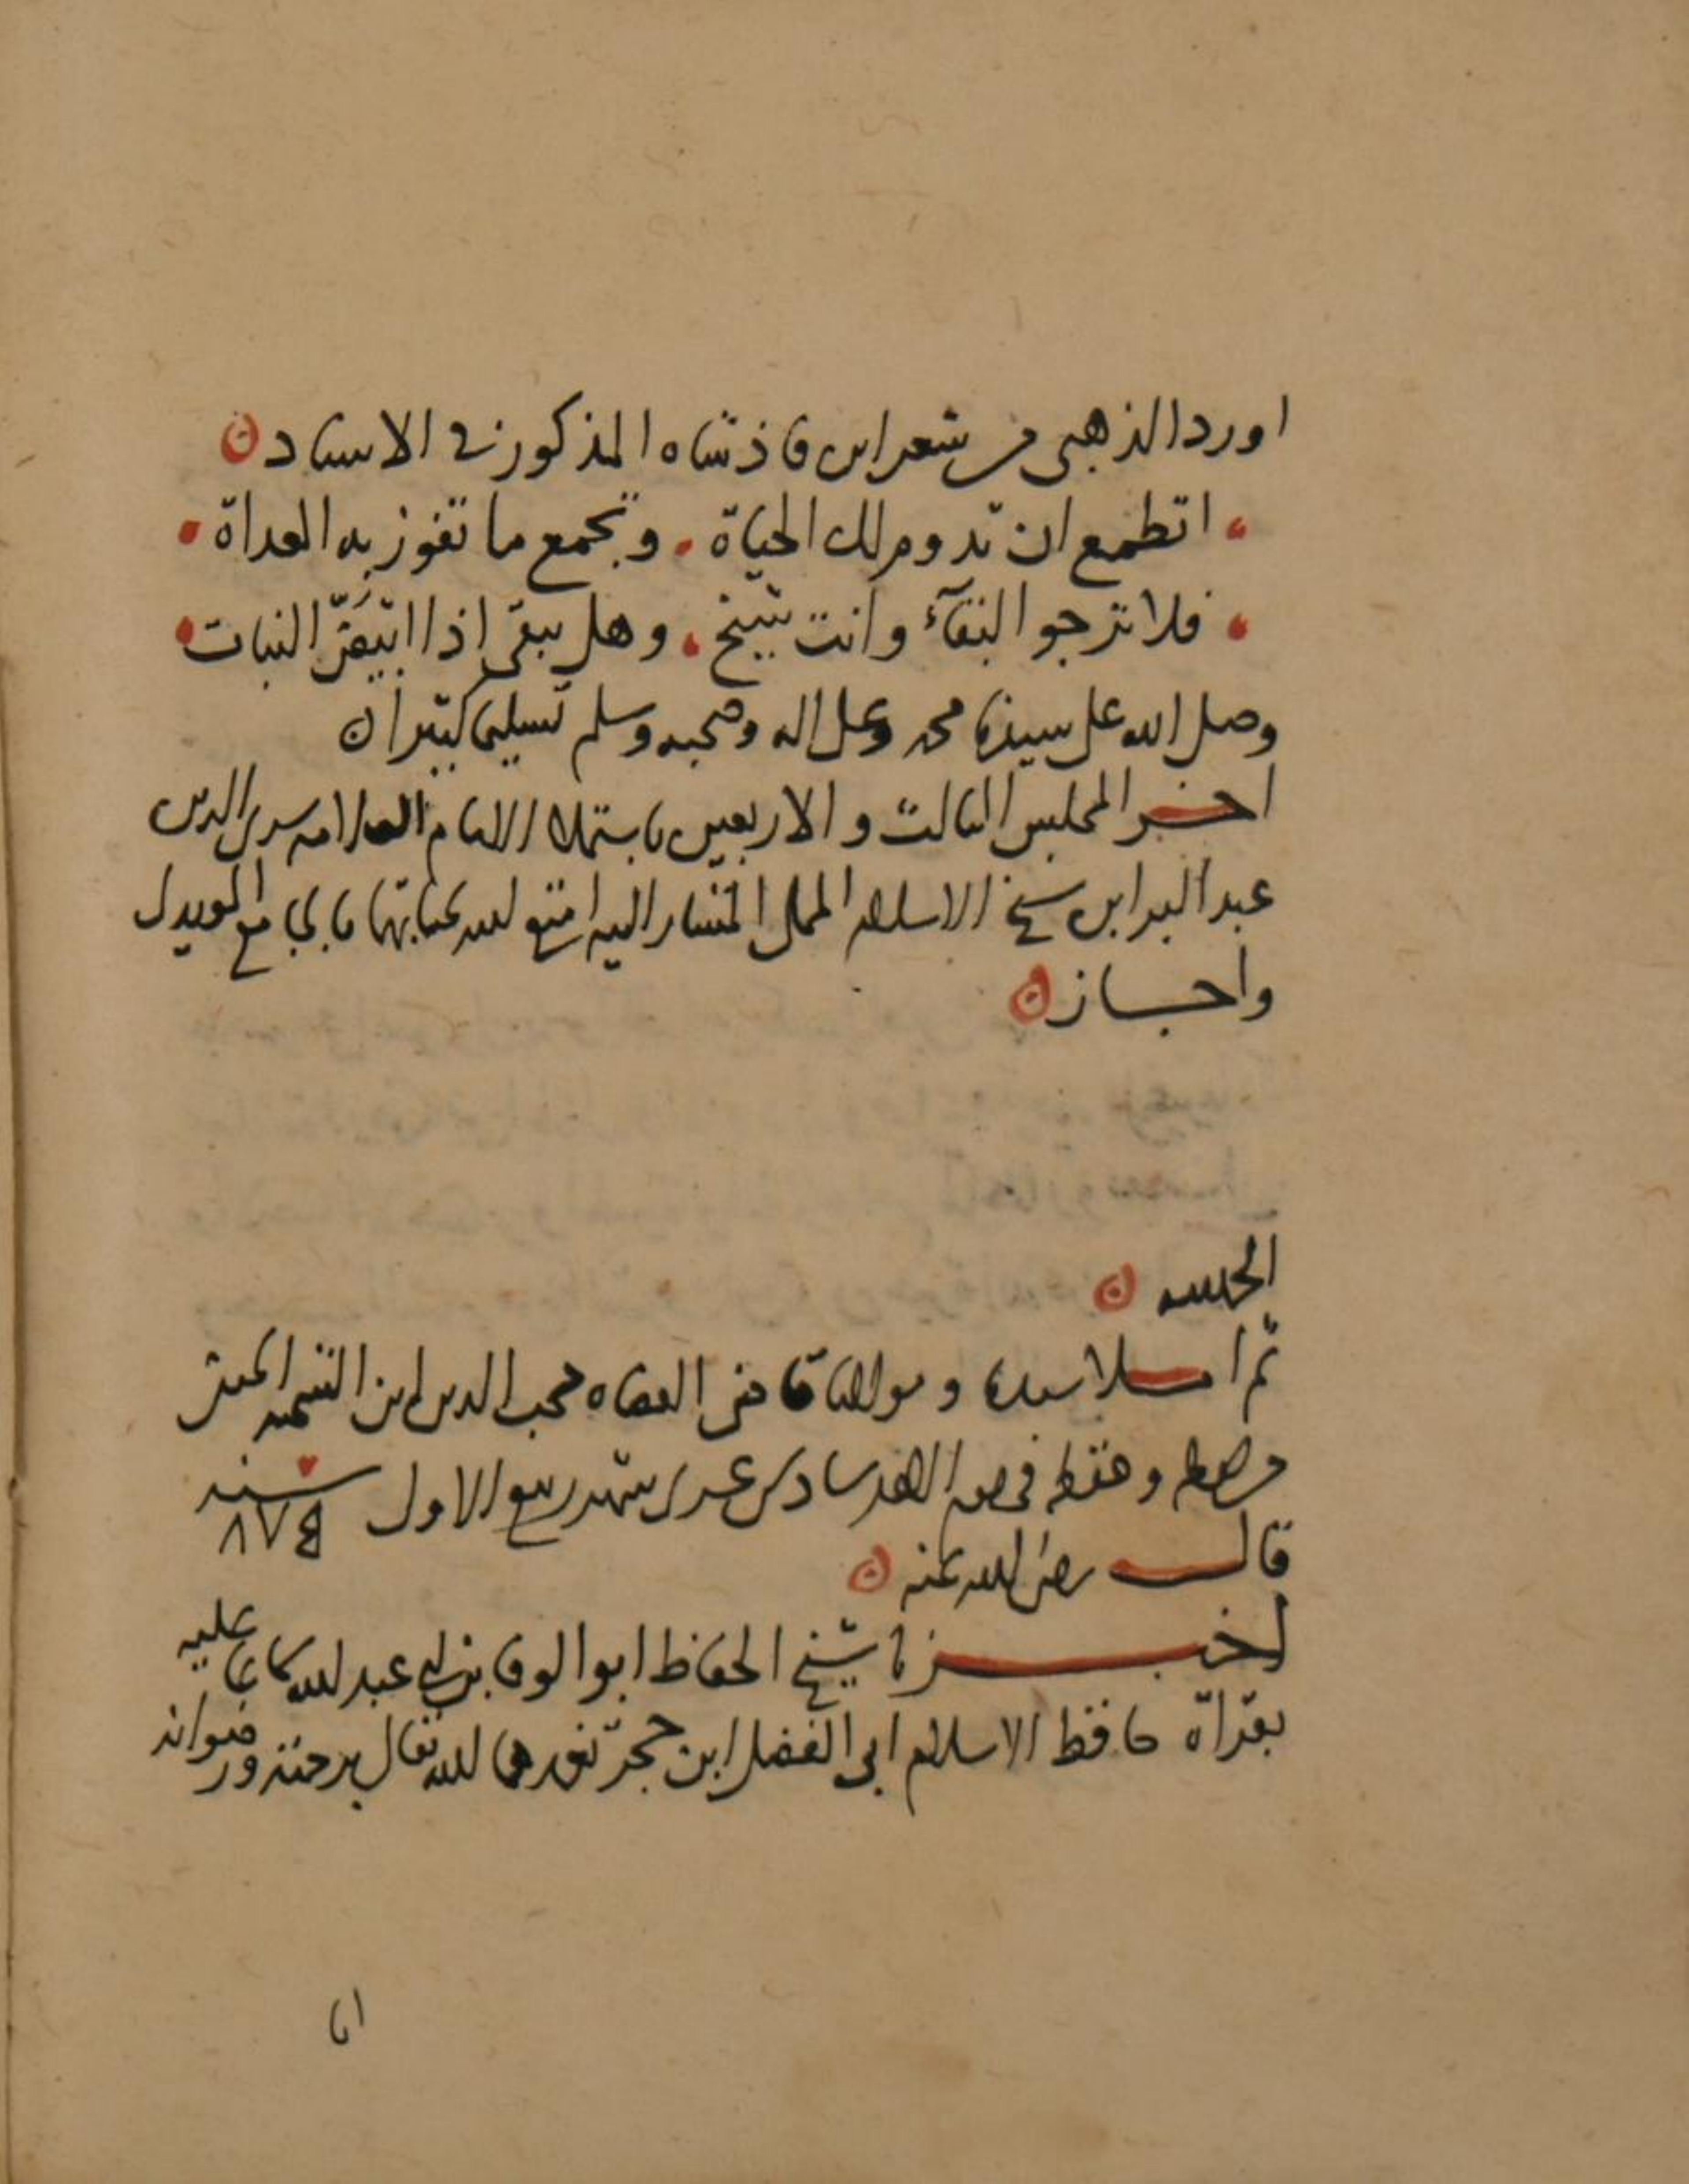 اورد الذهبي من شعر ابن فاذشاه المذكور في الاسناد ن
اتطمع ان تدوم لك الحياة . وتجمع ما تفوز به العداة
فلا ترجو البقاء وانت شيخ . وهل يبقى اذا ابيض النبات
وصلى الله على سيدنا محمد وعلى اله وصحبه وسلم تسليما كثيرا ن
اخر المجلس الثالث والاربعين باستملا الامام العلامه سري الدين
عبد البر ابن شيخ الاسلام المملي المشار اليه امتع الله بحياتهما
واجاز ن
الحمد لله ن
ثم املا سيدنا ومولانا قاضي القضاه محب الدين ابن الشحنه الحنفي
من لفظه وحفظه سادس عشري شهر ربيع الاول سنه ٨٧٤
قال رضي الله عنه ن
اخبرنا شيخ الحفاظ ابو الوفا بن ابي عبد الله سماعا عليه
بقراة حافظ الاسلام ابي الفضل ابن حجر تغمدهما الله تعالى برحمته ورضوانه
انا